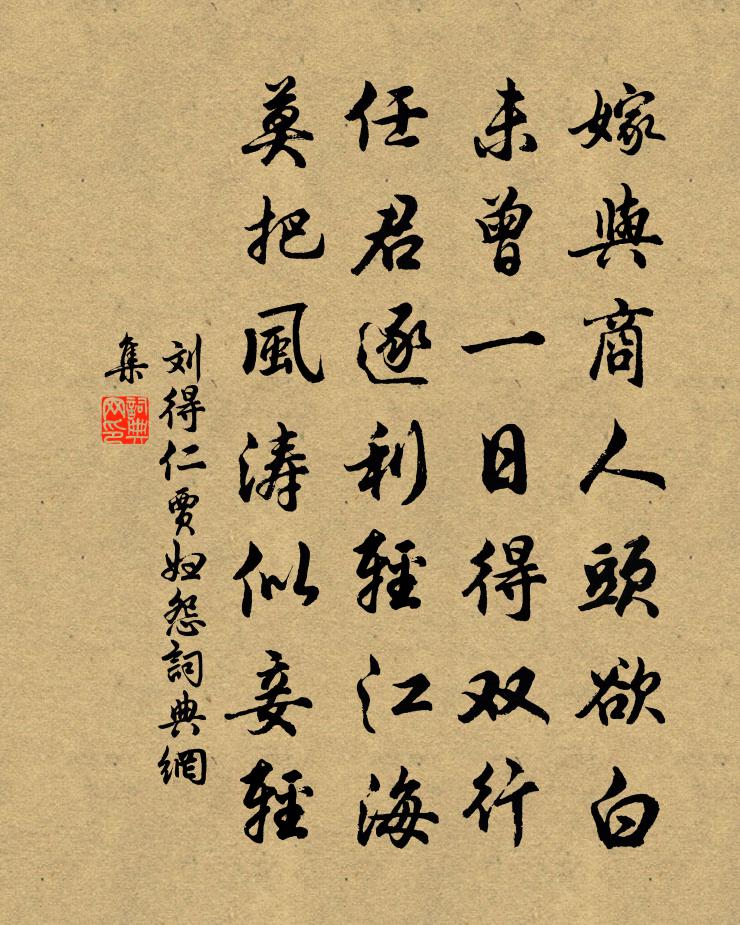 嫁與商人頭欲白
未曾一日得双行
任君逐利輕江海
莫把風涛似妾輕
刘得仁賈妇怨詞典網
集
詞典
网印